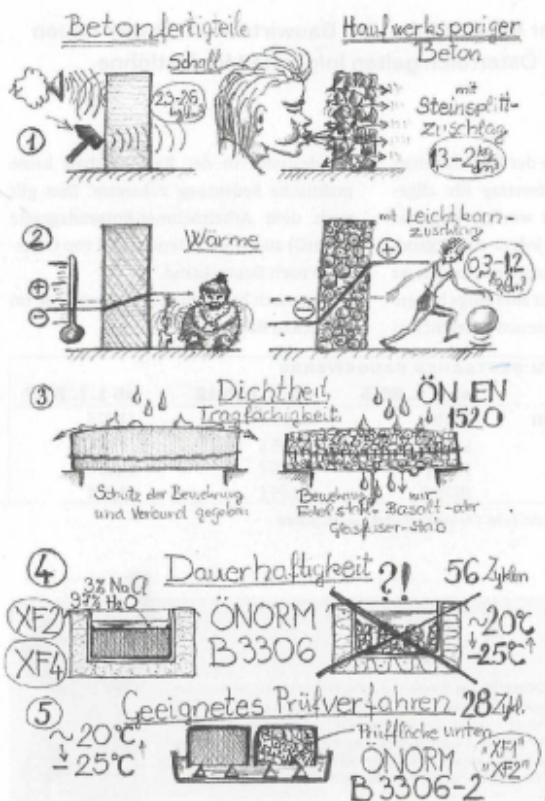 Betonfertigteile
Haufwerksporiger
Beton
Schall
2,3-2,6
kg/dm³
mit
Steinsplitt-
zuschlag
1,3-2 kg/dm³
1
2
Wärme
mit Leichtkorn-
zuschlag
0,3-1,2
kg/dm³
+
−
+
−
3
Dichtheit
Tragfähigkeit
ÖN EN
1520
Schutz der Bewehrung
und Verbund gegeben
Bewehrung nur
Edelstahl- Basalt- oder
Glasfaser-stab
4
Dauerhaftigkeit ?! 56 Zyklen
3% NaCl
97% H₂O
XF2
XF4
ÖNORM
B 3306
~20°C
-25°C
5
Geeignetes Prüfverfahren 28 Zykl.
~20°C
-25°C
Prüffläche unten
ÖNORM
B 3306-2
"XF1"
"XF2"